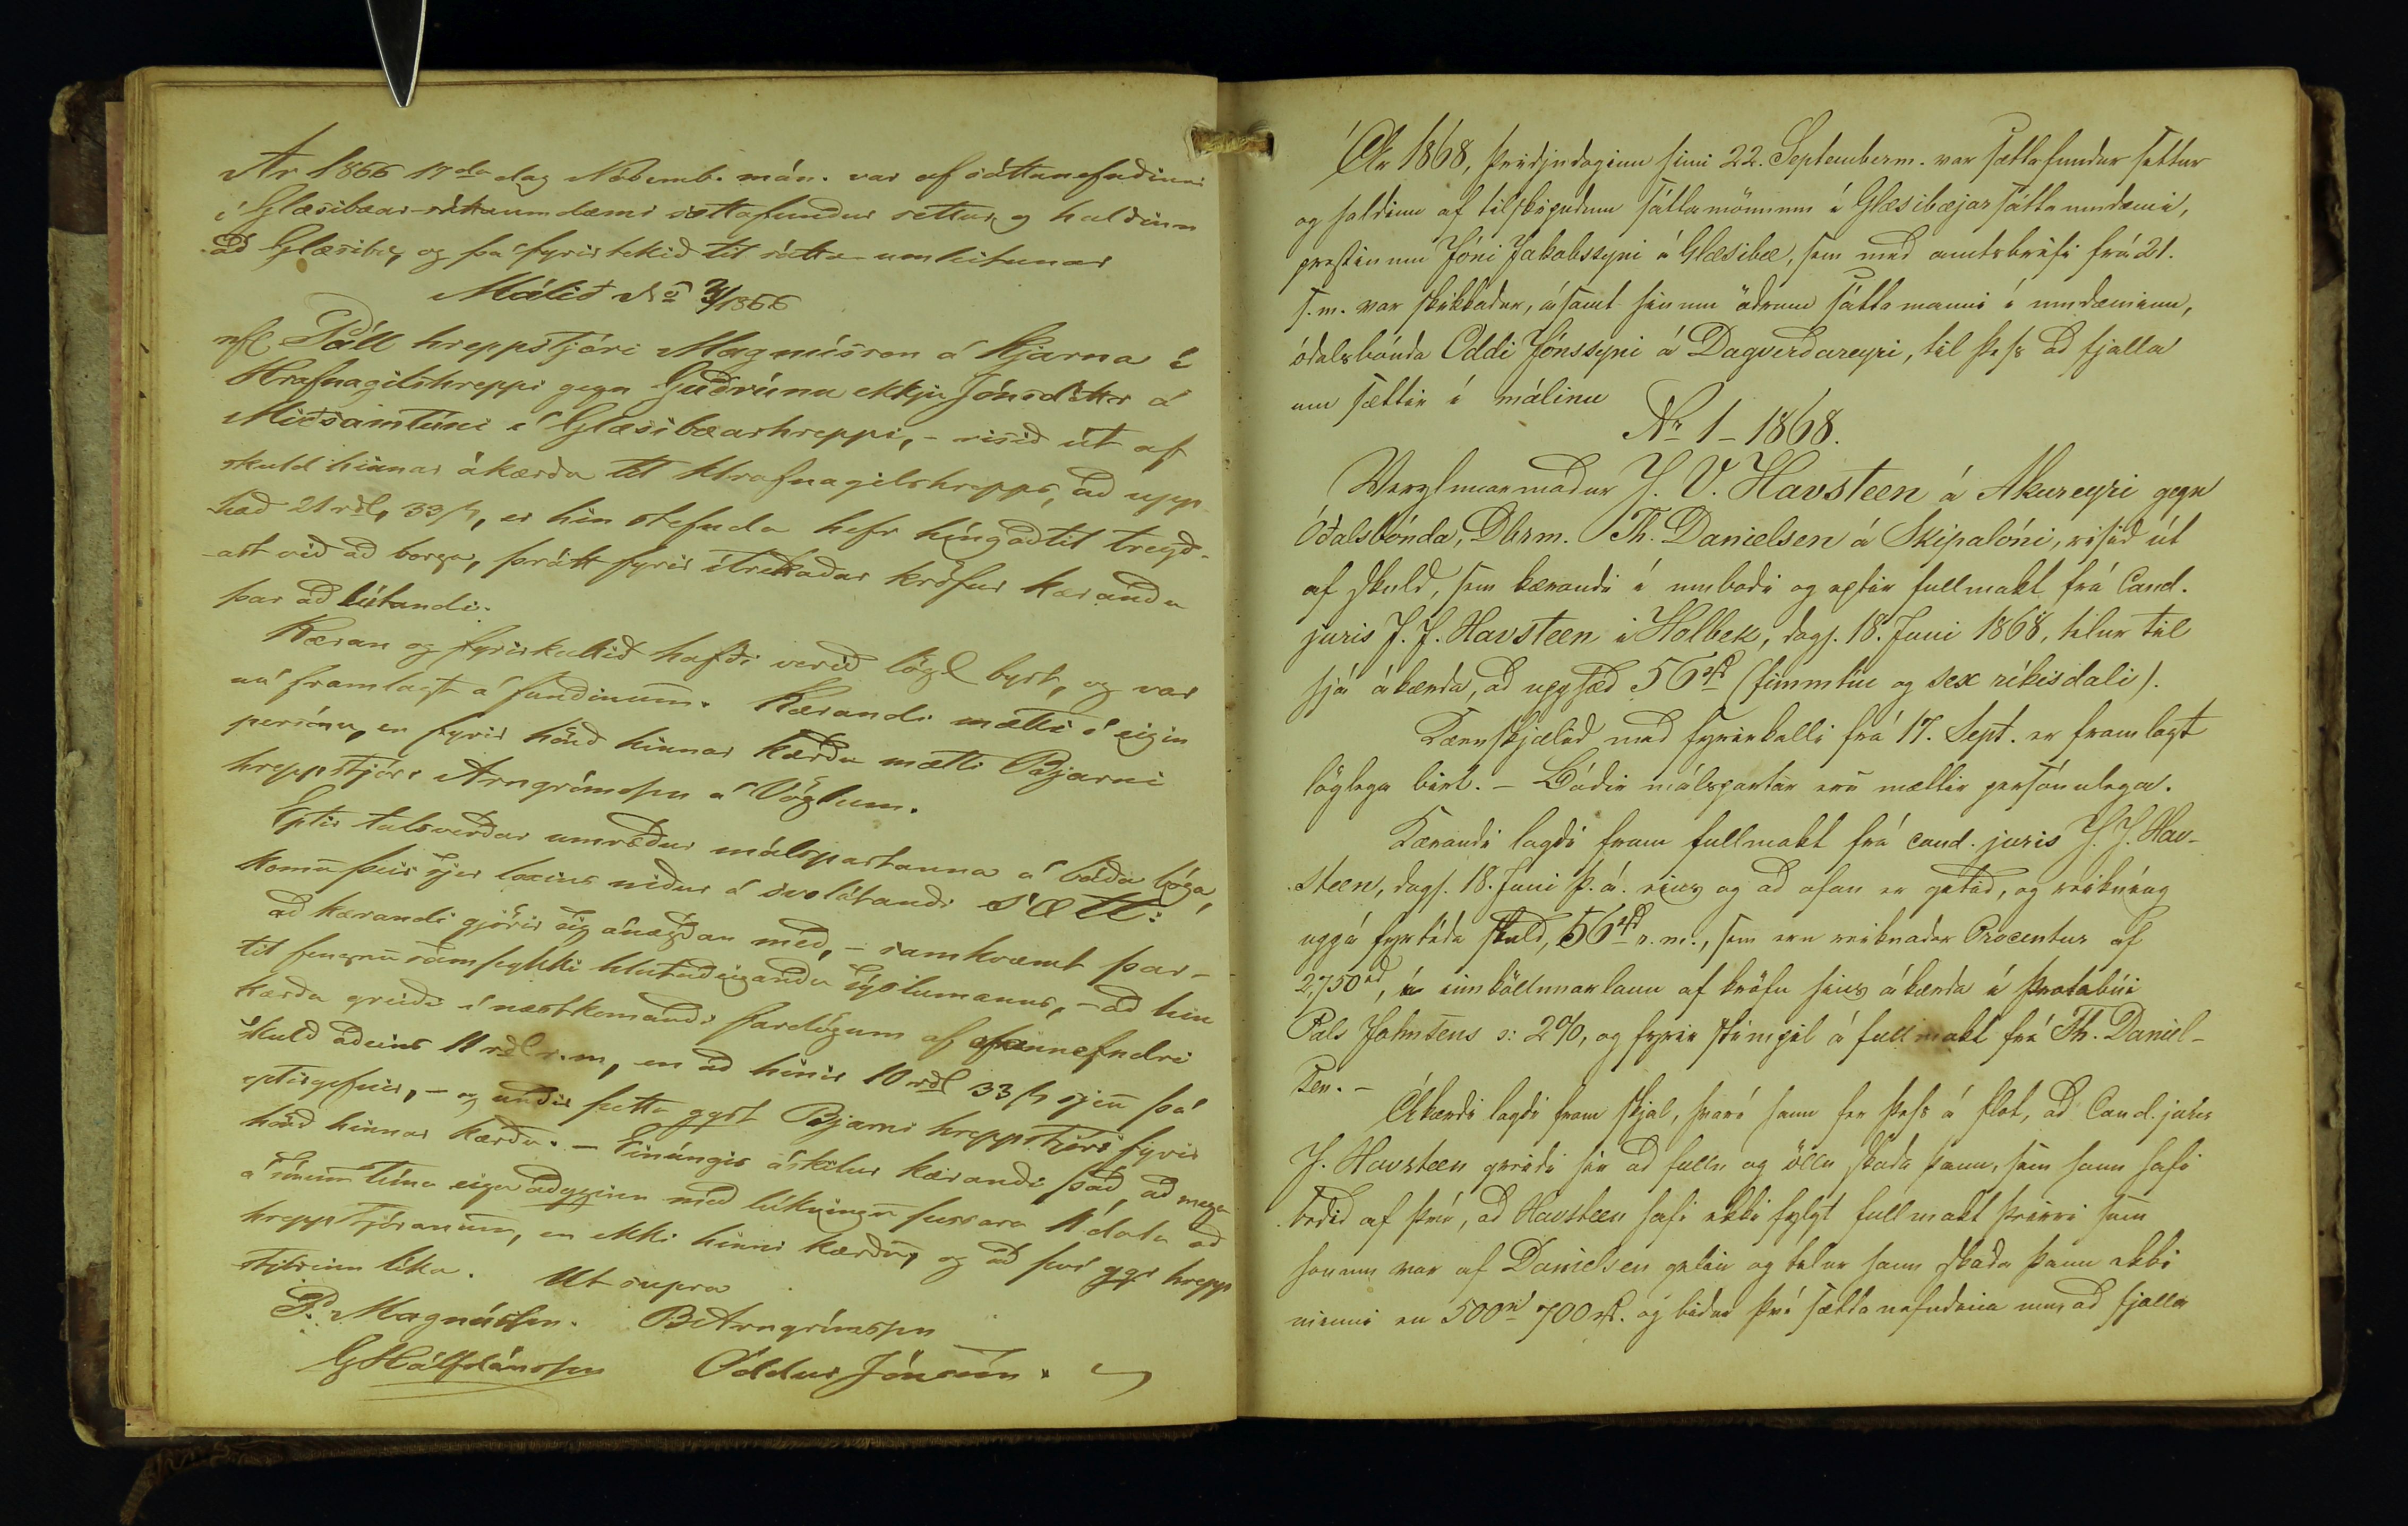 Ár 1866 17da dag Nóbemb. mán. var af sáttanefndinni
í Glæsibæar-sáttaumdæmi sættafundur settur og haldinn
að Glæsibæ, og þá fyrirtekið til sátta-umleitunar
Málið No 3/1866
nfl Páll hreppstjóri Magnússon á Kjarna í
Hrafnagilshreppi gegn Guðrúnu ekkju Jónsdóttur á
Miðsamtúni í Glæsibæarhreppi, - risið út af
skuld hinnar ákærðu til Hrafnagilshrepps, að upp
hæð 21 rdl, 33 ß, er hin stefnda hefr hingaðtil tregð-
-ast við að borga, þrátt fyrir ítrekaðar kröfur kæranda
þar að lútandi.
Kæran og fyrirkallið hafði verið lögl byrt, og var
nú framlagt á fundinum. Kærandi mætti í eigin
persónu, en fyrir hönd hinnar kærðu mætti Bjarni
hreppstjóri Arngrímsson á Vöglum.
Eptir talsverðar umræður málspartanna á báða bóga,
komu þeir sjer loxins niður á svolátandi Sætt:
að kærandi gjörir sig ánægðan með, - samkvæmt þar-
til fengnu samþykki hlutaðeiganda sýslumanns, - að hin
kærða greiði í næstkomandi fardögum af ofannefndri
skuld aðeins 11 rdl r.m, en að hinir 10 rdl 33 ß sjeu þá
eptirgefnir, - og undir þetta gekst Bjarni hreppstjóri fyrir
hönd hinnar kærðu. - Einúngis áskilur kærandi það, að mega
á sínum tíma eiga aðgaunginn með lúkningu þessara 11 dala að
hreppstjóranum, en ekki hinni kærðu, og að því gekk hrepp
stjórinn líka. Ut supra
P. Magnússon. BArngrímsson
GHálfdánsson Oddur Jónsson.
Ár 1868, þriðjudaginn hinn 22. Septemberm. var sættafundur settur
og haldinn af tilskipuðum sáttamönnum í Glæsibæjar sátta umdæmi,
prestinum Jóni Jakobssyni á Glæsibæ, sem með amtsbréfi frá 21.
s.m. var skikkaður, ásamt hinum öðrum sáttamanni í umdæminu,
óðalsbónda Oddi Jónssyni á Dagverðareyri, til þess að fjalla
um sættir í málinu
Nr. 1 - 1868.
Verzlunarmaður J. V. Havsteen á Akureyri gegn
Óðalsbónda, Dbrm. Th. Danielsen á Skipalóni, risið út
af skuld, sem kærandi í umboði og eptir fullmakt frá Cand.
juris J. J. Havsteen i Holbek, dags. 18. Juni 1868, telur til
hjá ákærða, að upphæð 56 rd (fimmtíu og sex ríkisdali).
Kæruskjalið með fyrirkalli frá 17. Sept. er framlagt
löglega birt. - Báðir málspartar eru mættir persónulega.
Kærandi lagði fram fullmakt frá cand. juris J. J. Hav-
steen, dags. 18. Juni þ. á. eins og að ofan er getið, og reikníng
uppá fyrtéða skuld, 56 rd r.m., sem eru reiknaðar Procentur af
2,750 rd, í innköllunarlaun af kröfu hins ákærða í þrotabúi
Pals Johnsens s: 2%, og fyrir stimpil á fullmakt frá Th. Daniel-
sen. -
Ákærði lagði fram skjal, hvarí hann fer þess á flot, að Cand. juris
J. Havsteen greiði sér að fullu og öllu skaða þann, sem hann hafi
beðið af því, að Havsteen hafi ekki fylgt fullmakt þeirri sem
honum var af Danielsen gefin og telur hann skaða þann ekki
minni en 500 rd 700 rd. og biður því sættanefndina um að fjalla